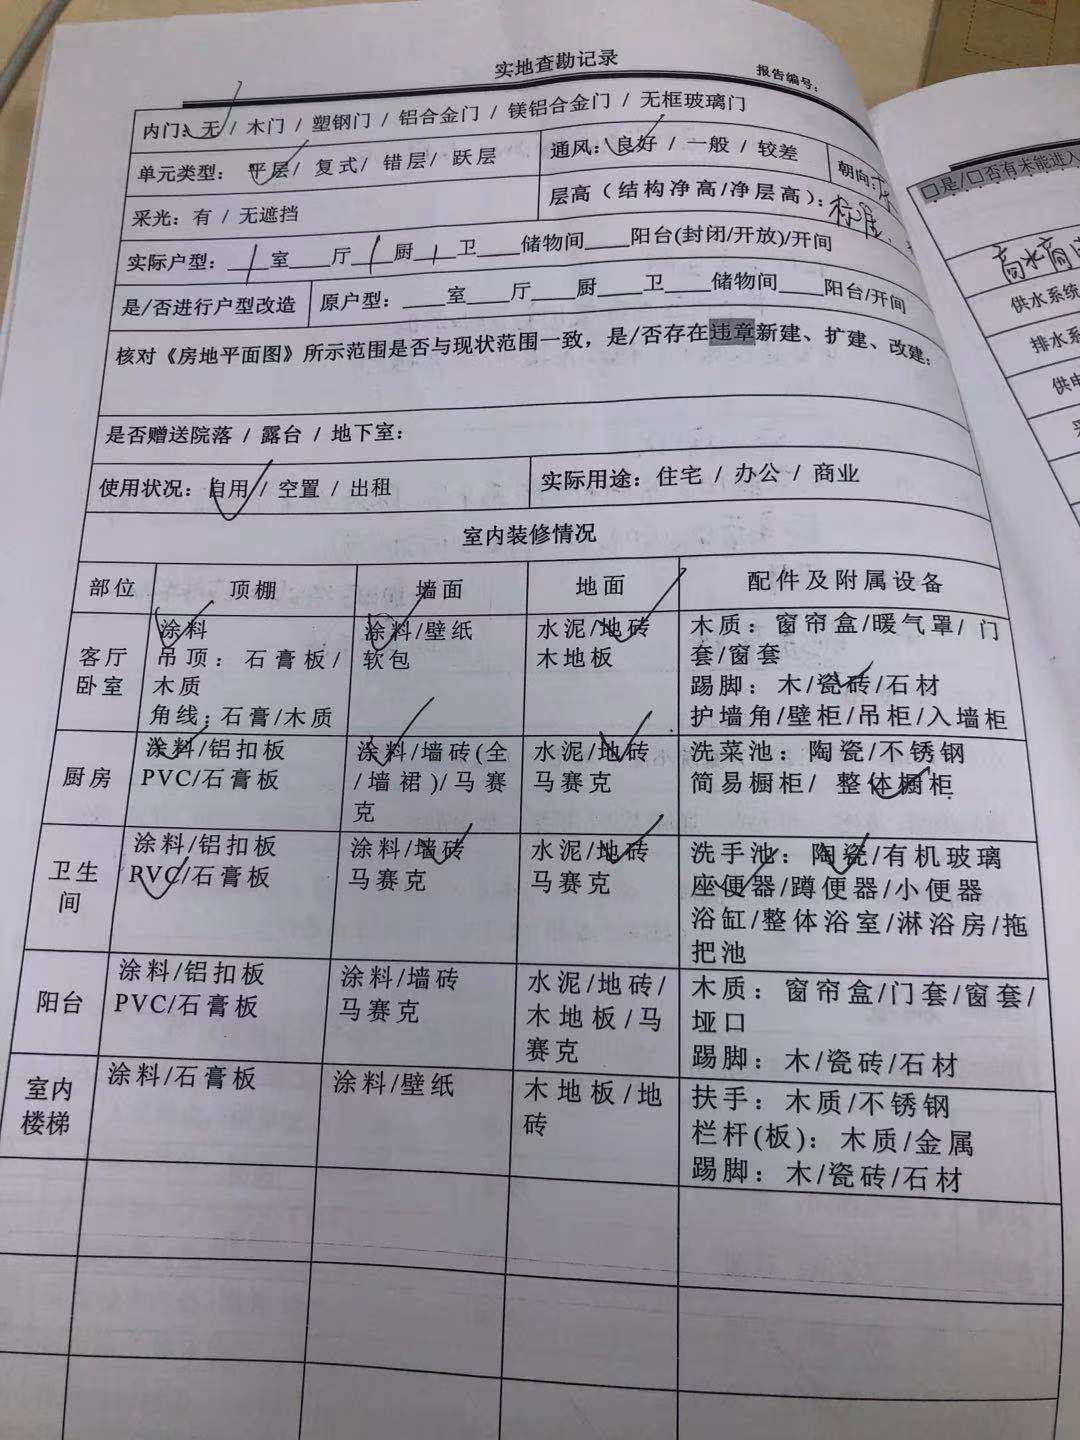 实地查勘记录
报告编号：
内门：无 / 木门 / 塑钢门 / 铝合金门 / 镁铝合金门 / 无框玻璃门
单元类型： 平层/ 复式/ 错层/ 跃层
通风：良好 / 一般 / 较差
朝向：
采光：有 / 无遮挡
层高（结构净高/净层高）：标准
实际户型：1室 厅1厨1卫 储物间 阳台(封闭/开放)/开间
是/否进行户型改造
原户型： 室 厅 厨 卫 储物间 阳台/开间
核对《房地平面图》所示范围是否与现状范围一致，是/否存在违章新建、扩建、改建：
是否赠送院落 / 露台 / 地下室：
使用状况：自用 / 空置 / 出租
实际用途：住宅 / 办公 / 商业
室内装修情况
部位
顶棚
墙面
地面
配件及附属设备
客厅
卧室
涂料
吊顶：石膏板/
木质
角线：石膏/木质
涂料/壁纸
软包
水泥/地砖
木地板
木质：窗帘盒/暖气罩/门
套/窗套
踢脚：木/瓷砖/石材
护墙角/壁柜/吊柜/入墙柜
厨房
涂料/铝扣板
PVC/石膏板
涂料/墙砖(全
/墙裙)/马赛
克
水泥/地砖
马赛克
洗菜池：陶瓷/不锈钢
简易橱柜/ 整体橱柜
卫生
间
涂料/铝扣板
PVC/石膏板
涂料/墙砖
马赛克
水泥/地砖
马赛克
洗手池：陶瓷/有机玻璃
座便器/蹲便器/小便器
浴缸/整体浴室/淋浴房/拖
把池
阳台
涂料/铝扣板
PVC/石膏板
涂料/墙砖
马赛克
水泥/地砖/
木地板/马
赛克
木质：窗帘盒/门套/窗套/
垭口
踢脚：木/瓷砖/石材
室内
楼梯
涂料/石膏板
涂料/壁纸
木地板/地
砖
扶手：木质/不锈钢
栏杆(板)：木质/金属
踢脚：木/瓷砖/石材
□是/□否有未能进入
供水系统
排水系
供电